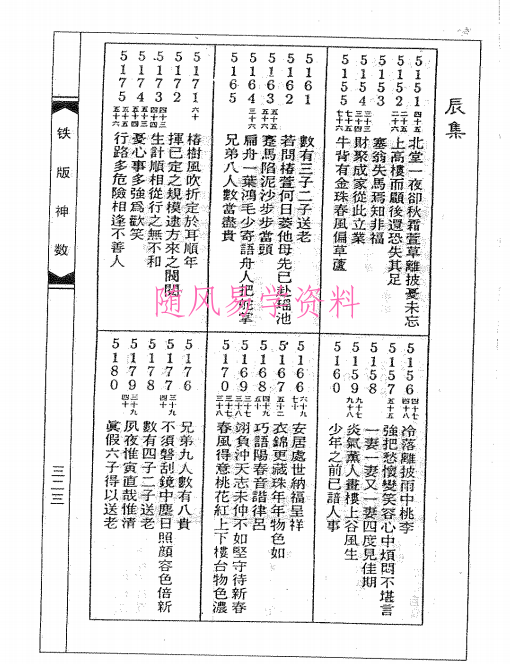 辰集
5151 四十五 北堂一夜卻秋霜萱草離披憂未忘
5152 二十五 二十六 上高樓而顧後還恐失其足
5153 塞翁失馬焉知非福
5154 三十三 三十四 財聚成家從此立業
5155 七十五 七十六 牛背有金珠春風偏草蘆
5156 四十七 四十八 冷落離披雨中桃李
5157 五十五 強把愁懷變笑容心中煩悶不堪言
5158 一妻一妻又一妻四度見佳期
5159 九十七 九十八 炎氣薰人畫樓上谷風生
5160 少年之前已諳人事
5161 數有三子二子送老
5162 若問椿萱何日萎他母先已赴瑶池
5163 五十五 五十六 蹇馬陷泥沙步步當頭
5164 三十三 三十四 扁舟一葉鴻毛少寄語舟人把舵掌
5165 兄弟八人數當盡貴
5166 六十九 七十 安居處世納福呈祥
5167 五十一 五十二 衣錦更藏珠年年物色如
5168 四十九 五十 巧語陽春音諧律呂
5169 三十一 翊負沖天志未伸不如堅守待新春
5170 三十七 三十八 春風得意桃花紅上下樓台物色濃
5171 六十 椿樹風吹折定於耳順年
5172 揮已定之規模遽方來之閥閱
5173 四十三 四十四 生計順相從行之無不和
5174 五十三 五十四 憂心事多強爲歡笑
5175 五十五 五十六 行路多危險相逢不善人
5176 兄弟九人數有八貴
5177 三十九 四十 不須磐刮鏡中塵日照顏容色倍新
5178 數有四子二子送老
5179 三十九 四十 夙夜惟寅直哉惟清
5180 眞假六子得以送老
铁版神数
三二三
随风易学资料